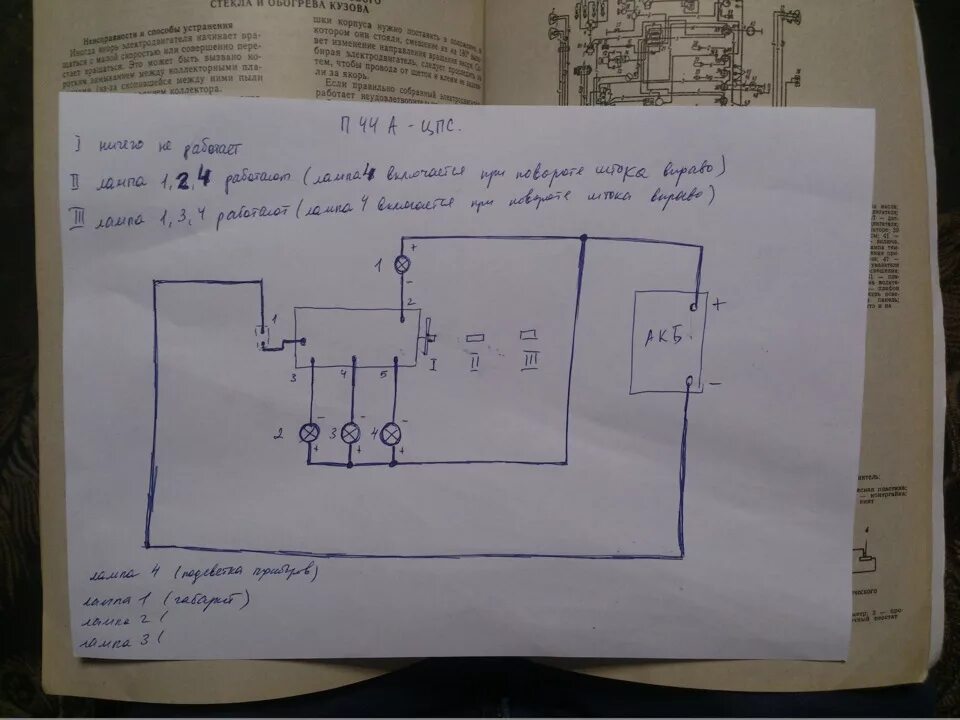 СТЕКЛА И ОБОГРЕВА КУЗОВА
Неисправности и способы устранения
Иногда якорь электродвигателя начинает вра-
щаться с малой скоростью или совершенно пере-
стает вращаться. Это может быть вызвано ко-
ротким замыканием между коллекторными пла-
(из-за скопившейся между ними пыли
коллектора.
шки корпуса нужно поставить в положение, в
котором они стояли, смещение их на 180° вызо-
вет изменение направления вращения якоря. Со-
бирая электродвигатель, следует проследить за
тем, чтобы провода от щеток и клемм не задева-
ли за якорь.
Если правильно собранный электродвигатель
работает неудовлетворительно
П 44 А - ЦПС.
I ничего не работает
II лампа 1, 2, 4 работают (лампа 4 включается при повороте штока вправо)
III лампа 1, 3, 4 работают (лампа 4 включается при повороте штока вправо)
+
1
-
2
1
3
4
5
I
II
III
АКБ.
+
-
2
-
+
3
-
+
4
-
+
лампа 4 (подсветка приборов)
лампа 1 (габарит)
лампа 2 (
лампа 3 (